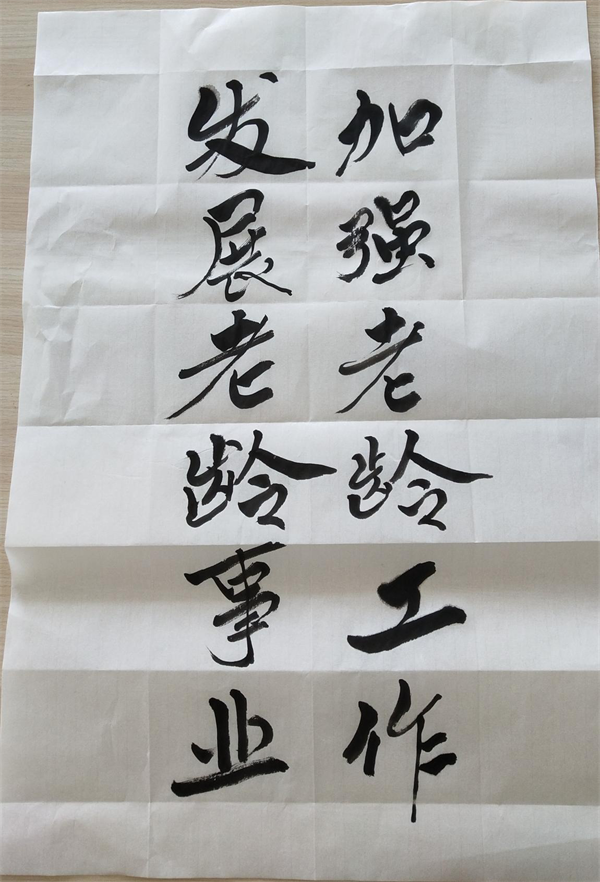 加强老龄工作
发展老龄事业